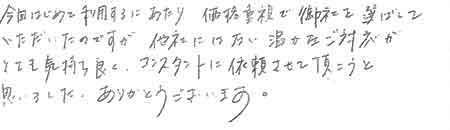 今回はじめて利用するにあたり 価格重視で御社を選ばして
いただいたのですが 他社にはない温かなご対応が
とても気持ち良く、コンスタントに依頼させて頂こうと
思いました。ありがとうございます。